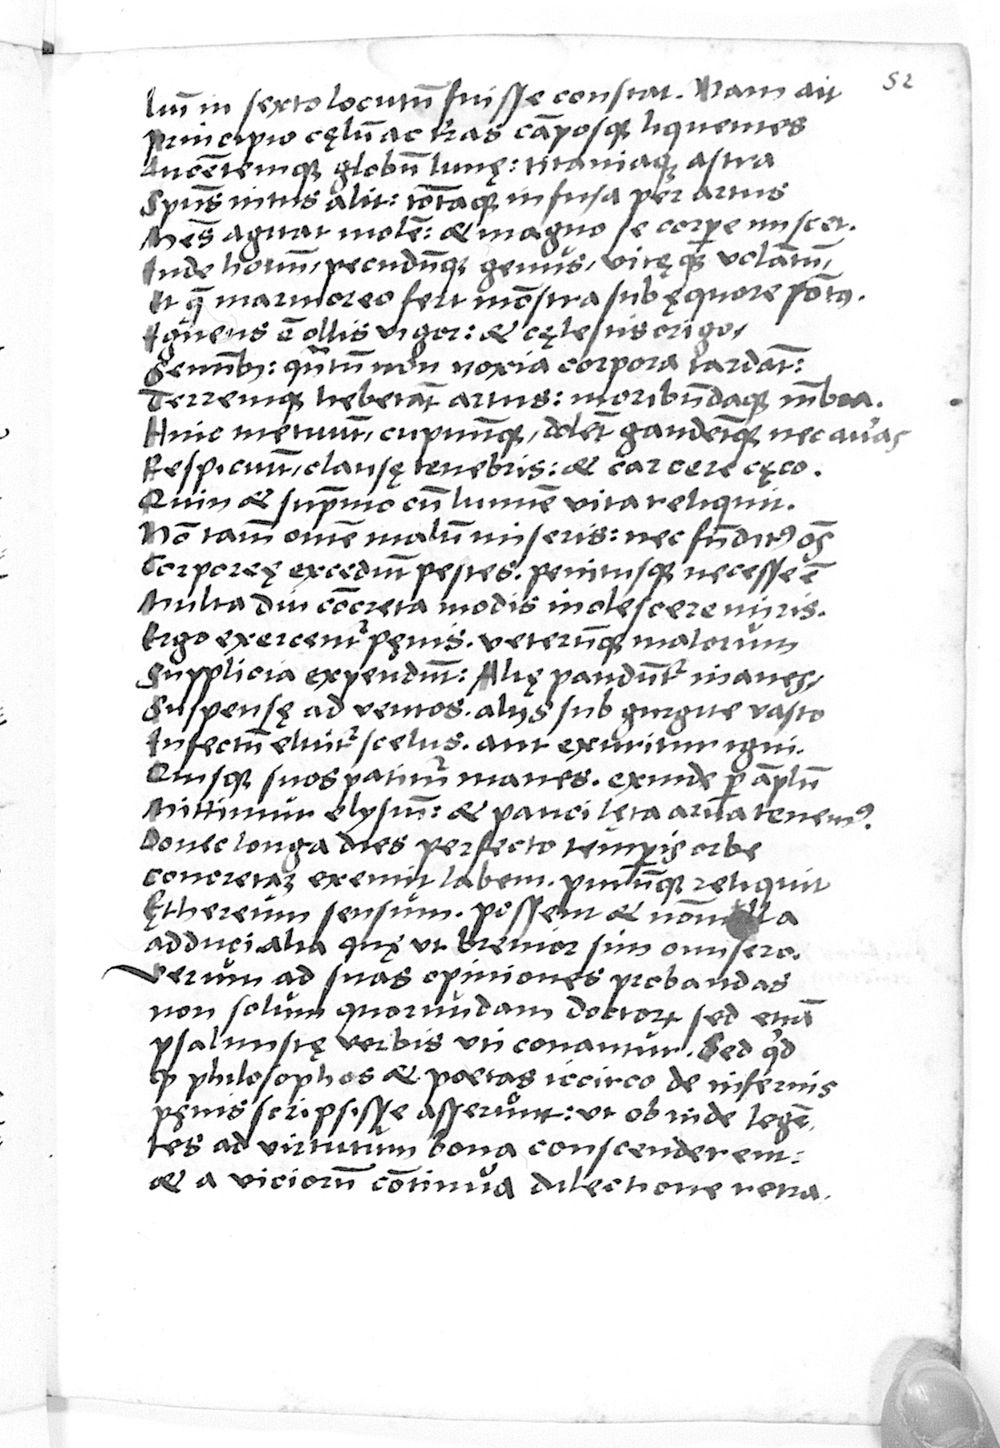 52
liũ in sexto locutũ fuisse constat. Nam ait
Principio cęlũ ac t̃ras cãposq; liquentes
Lucẽtemq; globũ lunę: titaniaq; astra
Spũs intus alit: totãq; infusa per artus
Mẽs agitat molẽ: & magno se corpe miscet.
Inde hominũ, pecudũq; genus, vitęq; volãtũ,
Et q̃ marmoreo fert mõstra sub ęquore põt9.
Igneus ẽ ollis vigor: & cęlestis origo,
Seminib;: qũtũ non noxia corpora tardãt:
Terreniq; hebetãt artus: moribũdaq; mẽbra.
Hinc metuũt, cupiũtq;, dolẽt gaudẽtq; nec auras
Respiciũt, clausę tenebris: & carcere cęco.
Quin & sup̃mo cũ lumine vita reliquit.
Nõ tamẽ omne malũ miseris: nec fũdit9 oẽs
Corporeę excedũt pestes. penitusq; necesse ẽ
Multa diu cõcreta modis inolescere miris.
Ergo exercent̃ pęnis. veterũq; malorum
Supplicia expendũt: Alię pandũt̃ inanes,
Suspensę ad ventos. alijs sub gurgite vasto
Infectũ eluit̃ scelus. aut exuritur igni.
Quisq; suos patimur manes. exinde p ãplũ
Mittimur elysiũ: & pauci lęta arua tenem9.
Donec longa dies perfecto temporis orbe
Concretaz exemit labem. purũq; reliquit
Ęthereum sensum. possent & nõnulla
adduci alia quę vt breuior sim omisero.
Verum ad suas opiniones probandas
non solum quorundam doctorꝝ sed etiã
psalmistę verbis vti conantur. Sed qd
ꝙ philosophos & poetas iccirco de infernis
pęnis scripsisse asserunt: vt ob inde legẽ
tes ad virtutum bona conscenderent:
& a viciorũ cõtinua dilectione retra.